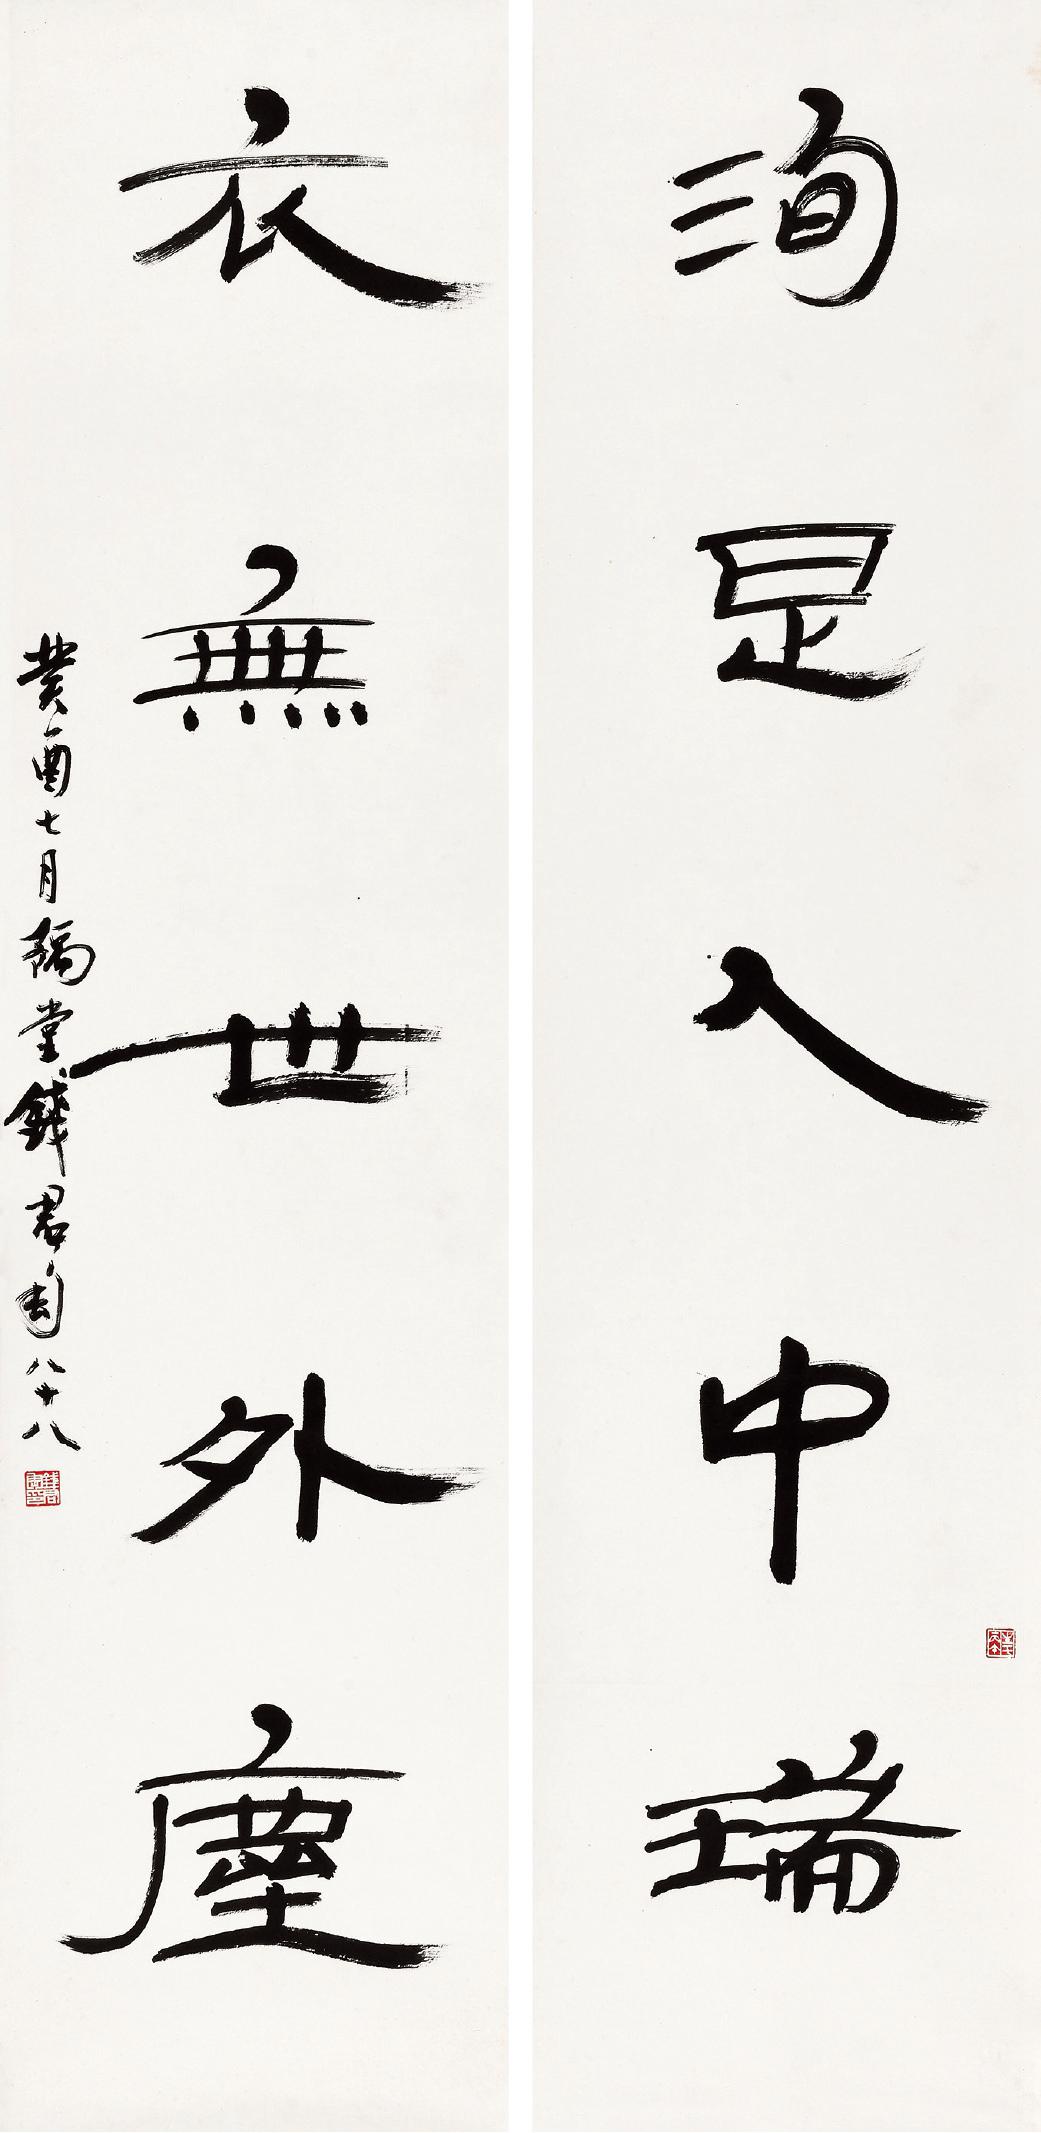 洵是人中瑞
衣無世外塵
癸酉七月隔堂錢君匋八十八